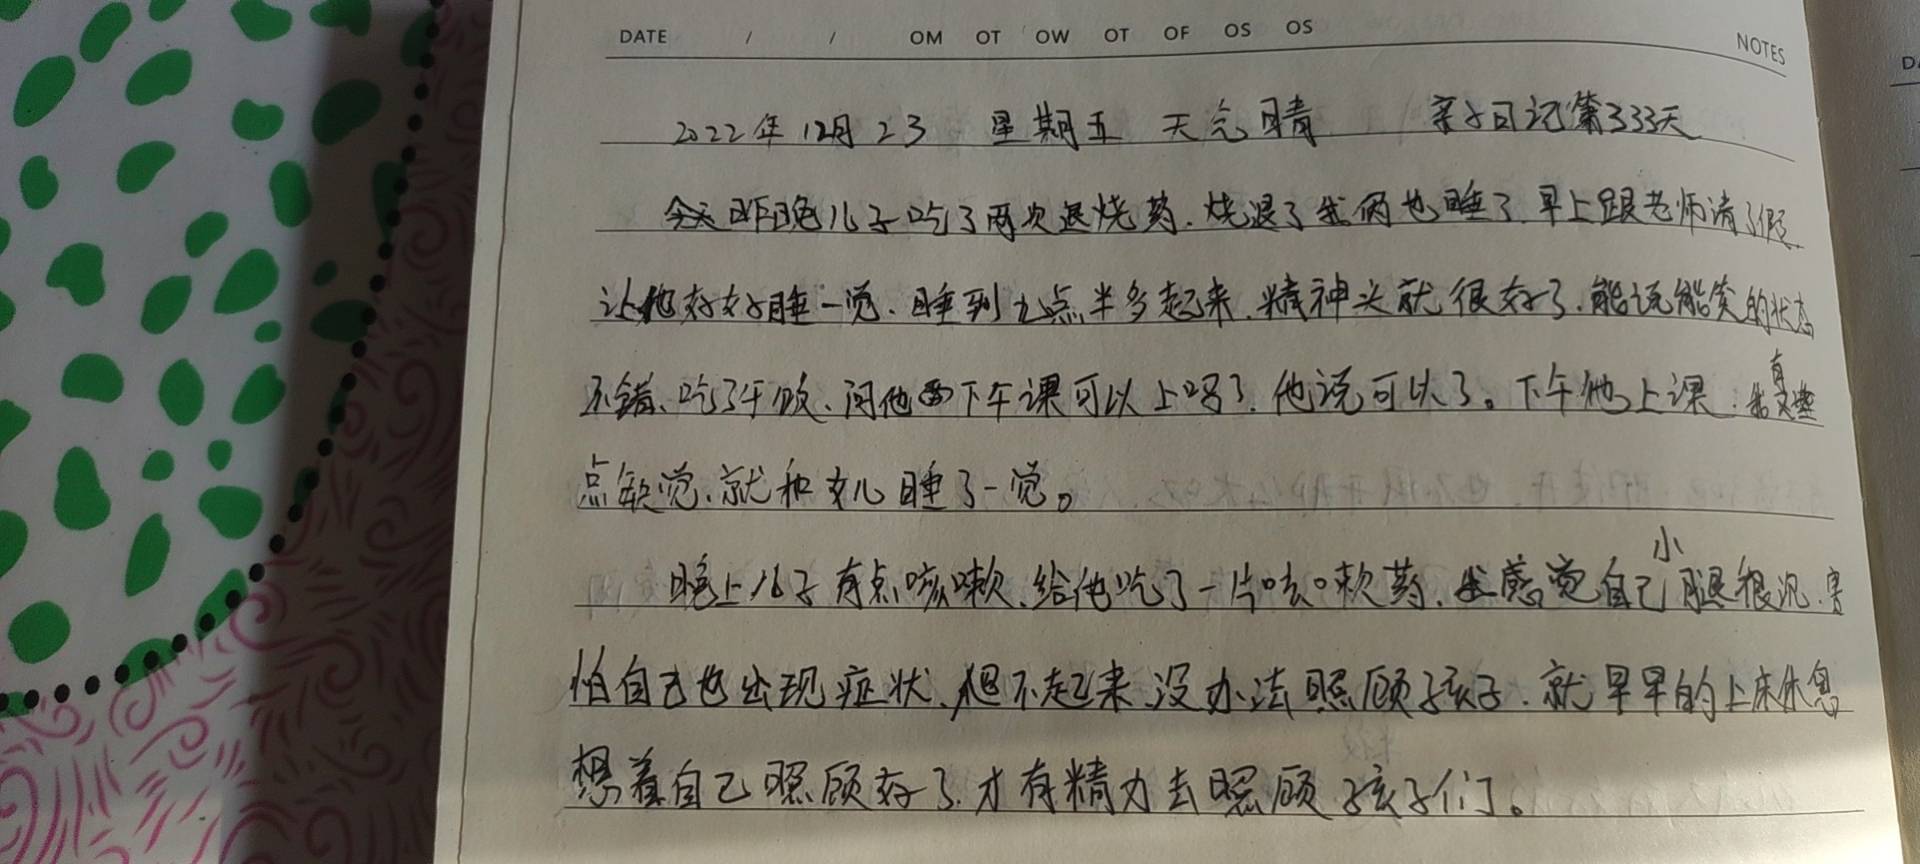 DATE / / OM OT OW OT OF OS OS NOTES
2022年12月23 星期五 天气晴 亲子日记第333天
昨晚儿子吃了两次退烧药.烧退了我俩也睡了.早上跟老师请了假
让他好好睡一觉.睡到九点半多起来.精神头就很好了.能说能笑的状态
不错.吃了午饭.问他下午课可以上吗?他说可以了。下午他上课.我有
点缺觉.就和女儿睡了一觉。
晚上儿子有点咳嗽.给他吃了一片咳嗽药.我感觉自己小腿很沉.害
怕自己也出现症状.起不起来没办法照顾孩子.就早早的上床休息
想着自己照顾好了.才有精力去照顾孩子们。